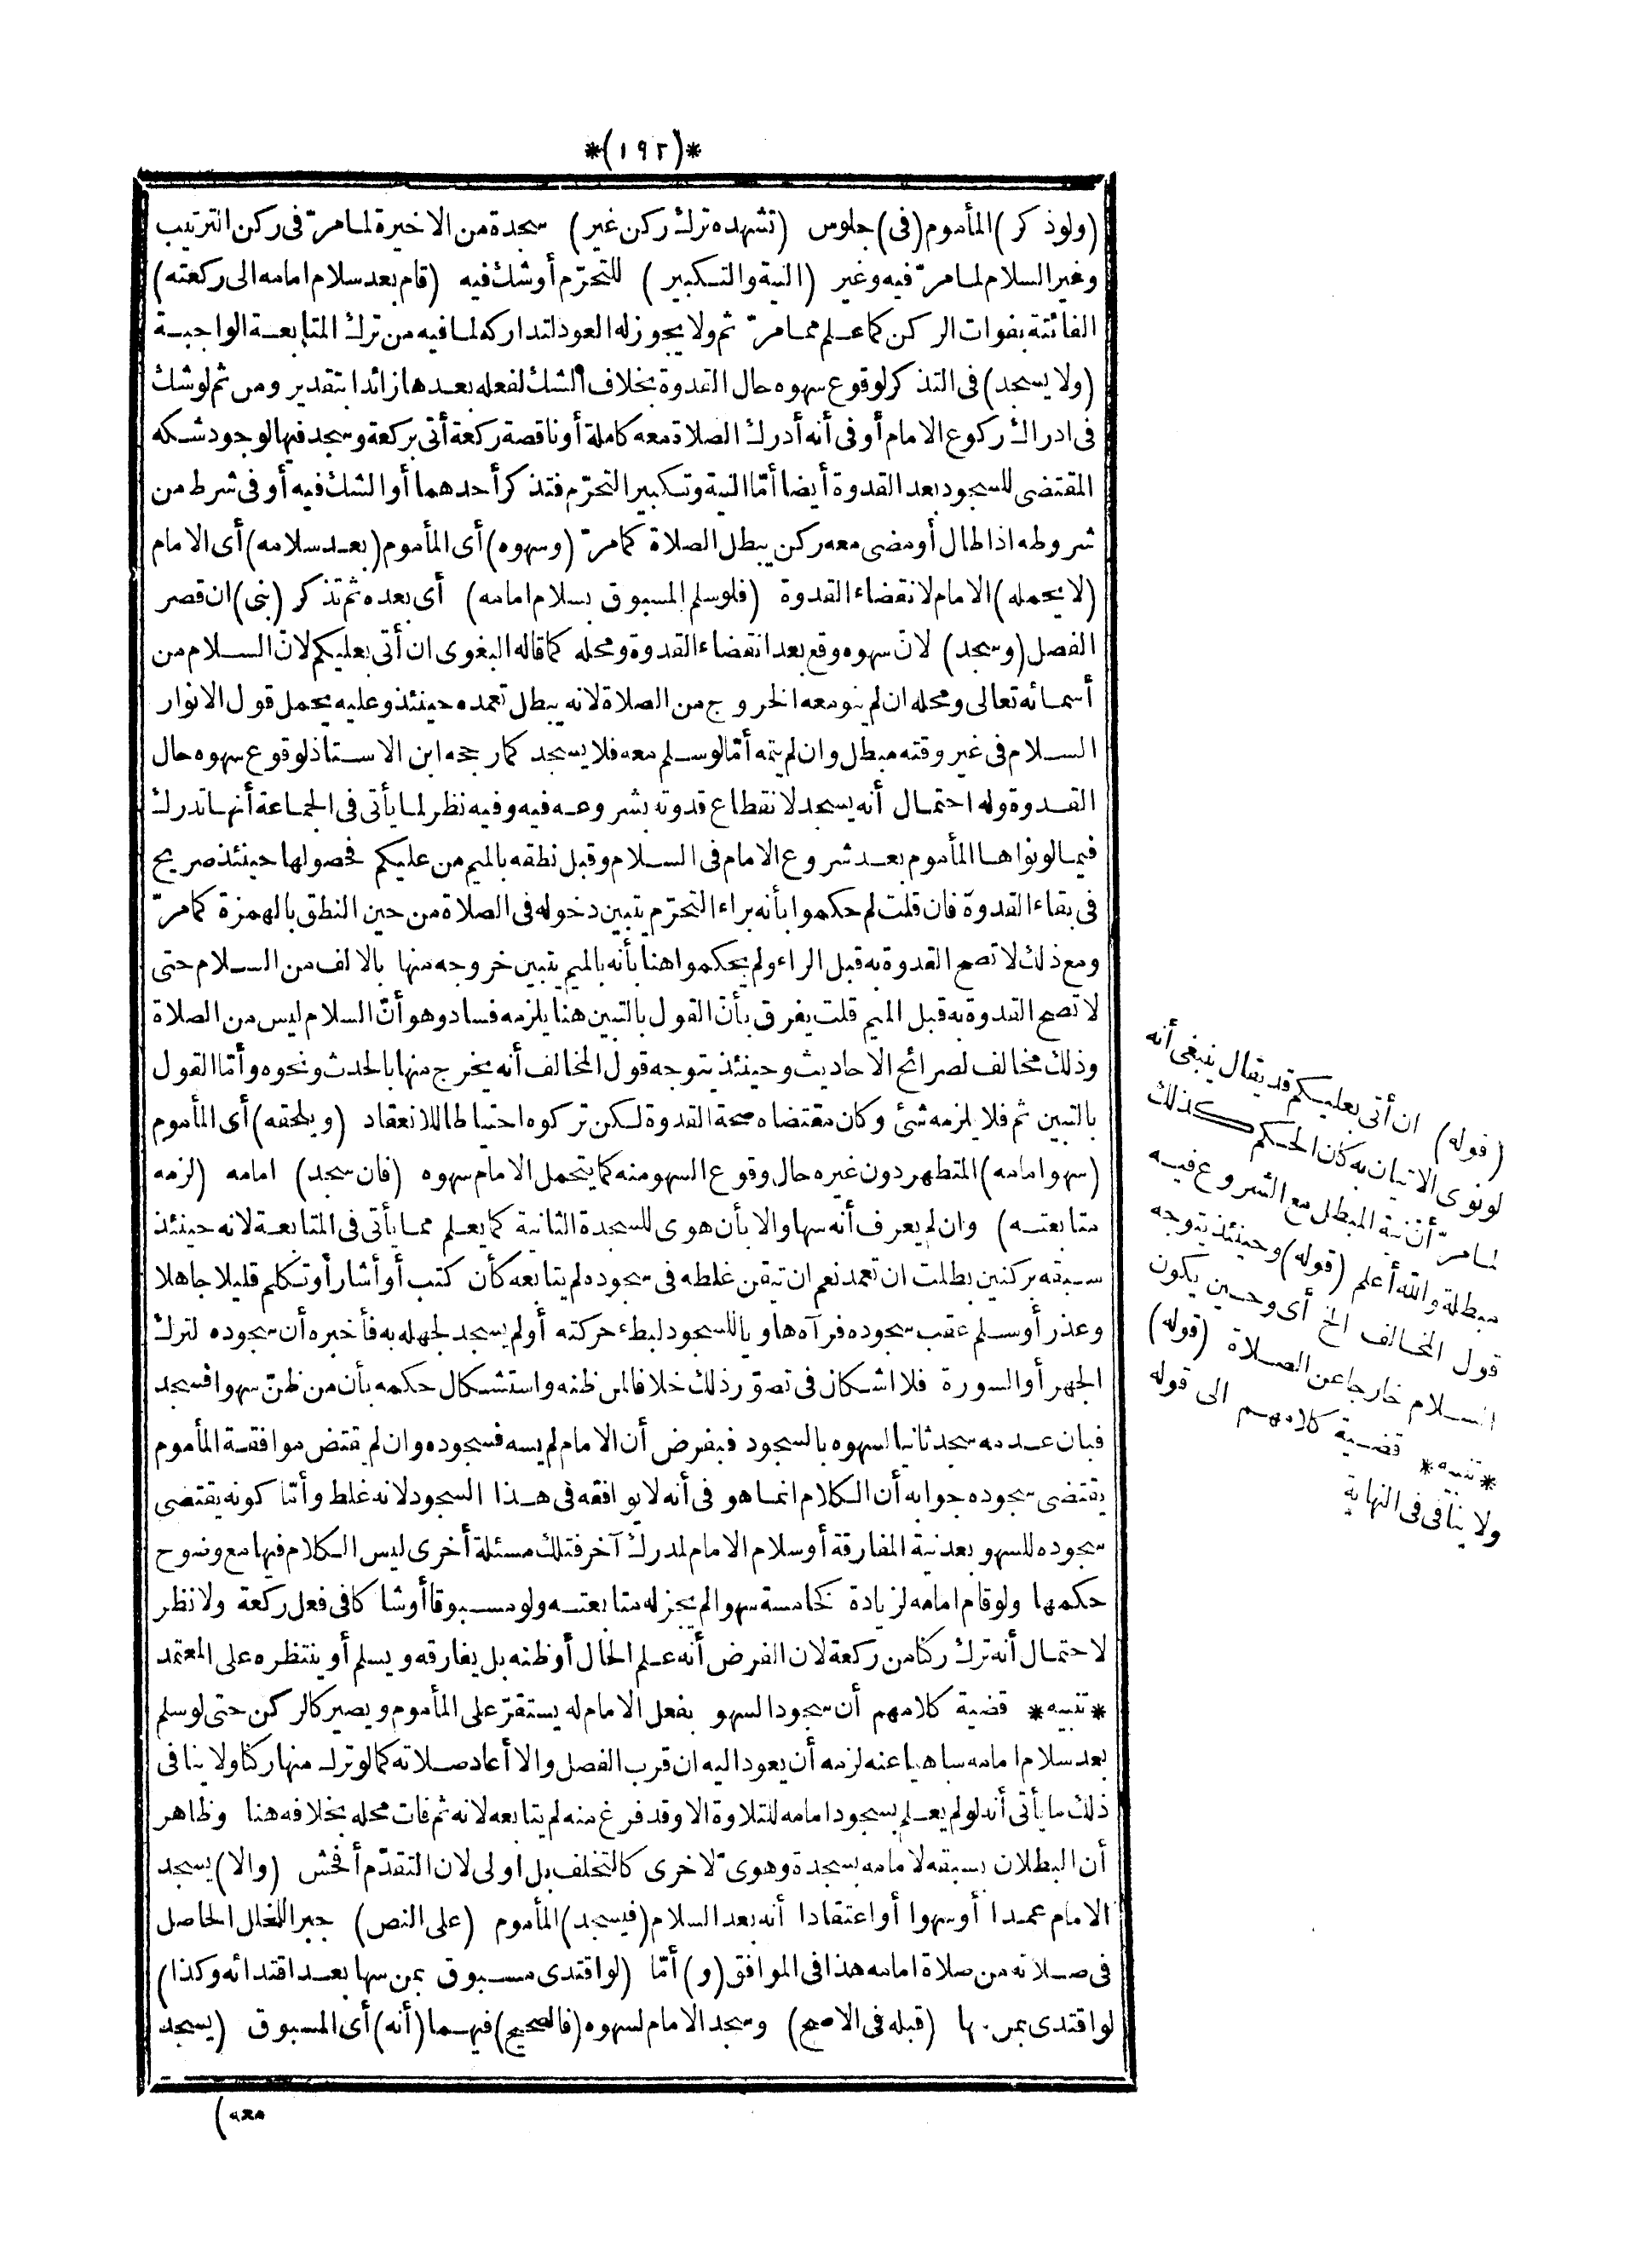 *(١٩٢)*
(ولوذكر) المأموم (في) جلوس (تشهده ترك ركن غير) سجدة من الاخيرة لما مرّ فى ركن الترتيب
وغير السلام لما مرّ فيه وغير (النية والتكبير) للتحرّم أوشك فيه (قام بعد سلام امامه الى ركعته)
الفائتة بفوات الركن كما علم مما مرّ ثم ولا يجوز له العود لتداركه لما فيه من ترك المتابعة الواجبة
(ولا يسجد) فى التذكر لوقوع سهوه حال القدوة بخلاف الشك لفعله بعدها زائدا بتقدير ومن ثم لوشك
فى ادراك ركوع الامام أو فى أنه أدرك الصلاة معه كاملة أو ناقصة ركعة أتى بركعة وسجد فيها لوجود شكه
المقتضى للسجود بعد القدوة أيضا أمّا النية وتكبير التحرّم فتذكر أحدهما أو الشك فيه أو فى شرط من
شروطه اذا طال أو مضى معه ركن يبطل الصلاة كما مرّ (وسهوه) أى المأموم (بعد سلامه) أى الامام
(لا يحمله) الامام لانقضاء القدوة (فلوسلم المسبوق بسلام امامه) أى بعده ثم تذكر (بنى) ان قصر
الفصل (وسجد) لانّ سهوه وقع بعد انقضاء القدوة ومحله كما قاله البغوى ان أتى بعليكم لانّ السلام من
أسمائه تعالى ومحله ان لم ينو معه الخروج من الصلاة لانه يبطل تعمده حينئذ وعليه يحمل قول الانوار
السلام فى غير وقته مبطل وان لم يتمه أمّا لوسلم معه فلا يسجد كما رجحه ابن الاستاذ لوقوع سهوه حال
القدوة وله احتمال أنه يسجد لانقطاع قدوته بشروعه فيه وفيه نظر لما يأتى فى الجماعة أنها تدرك
فيما لونواها المأموم بعد شروع الامام فى السلام وقبل نطقه بالميم من عليكم فحصولها حينئذ صريح
فى بقاء القدوة فان قلت لم حكموا بأنه براء التحرّم يتبين دخوله فى الصلاة من حين النطق بالهمزة كما مرّ
ومع ذلك لا تصح القدوة به قبل الراء ولم يحكموا هنا بأنه بالميم يتبين خروجه منها بالالف من السلام حتى
لا تصح القدوة به قبل الميم قلت يفرق بأنّ القول بالتبين هنا يلزمه فساد وهو أنّ السلام ليس من الصلاة
وذلك مخالف لصرائح الاحاديث وحينئذ يتوجه قول المخالف أنه يخرج منها بالحدث ونحوه وأمّا القول
بالتبين ثم فلا يلزمه شئ وكان مقتضاه صحة القدوة لكن تركوه احتياطا للانعقاد (ويلحقه) أى المأموم
(سهوامامه) المتطهر دون غيره حال وقوع السهو منه كما يتحمل الامام سهوه (فان سجد) امامه (لزمه
متابعته) وان لم يعرف أنه سها والا بأن هوى للسجدة الثانية كما يعلم مما يأتى فى المتابعة لانه حينئذ
سبقه بركنين بطلت ان تعمد نعم ان تيقن غلطه فى سجوده لم يتابعه كأن كتب أو أشار أو تكلم قليلا جاهلا
وعذر أوسلم عقب سجوده فرآه هاويا للسجود لبطء حركته أو لم يسجد لجهله به فأخبره أن سجوده لترك
الجهر أو السورة فلا اشكال فى تصوّر ذلك خلافا لمن ظنه واستشكال حكمه بأن من ظنّ سهوا فسجد
فبان عدمه سجد ثانيا لسهوه بالسجود فبفرض أن الامام لم يسه فسجوده وان لم يقتض موافقة المأموم
يقتضى سجوده جوابه أن الكلام انما هو فى أنه لا يوافقه فى هذا السجود لانه غلط وأمّا كونه يقتضى
سجوده للسهو بعد نية المفارقة أو سلام الامام لمدرك آخر فتلك مسئلة أخرى ليس الكلام فيها مع وضوح
حكمها ولو قام امامه لزيادة كخامسة سهوا لم يجز له متابعته ولو مسبوقا أو شاكا فى فعل ركعة ولا نظر
لاحتمال أنه ترك ركنا من ركعة لان الفرض أنه علم الحال أو ظنه بل يفارقه ويسلم أو ينتظره على المعتمد
*تنبيه* قضية كلامهم أن سجود السهو بفعل الامام له يستقرّ على المأموم ويصير كالركن حتى لوسلم
بعد سلام امامه ساهيا عنه لزمه أن يعود اليه ان قرب الفصل والا أعاد صلاته كما لو ترك منها ركنا ولا ينافى
ذلك ما يأتى أنه لو لم يعلم بسجود امامه للتلاوة الا وقد فرغ منه لم يتابعه لانه ثم فات محله بخلافه هنا وظاهر
أن البطلان بسبقه لامامه بسجدة وهوىّ لاخرى كالتخلف بل اولى لان التقدّم أفحش (والا) يسجد
الامام عمدا أو سهوا أو اعتقادا أنه بعد السلام (فيسجد) المأموم (على النص) جبرا للخلل الحاصل
فى صلاته من صلاة امامه هذا فى الموافق (و) أمّا (لو اقتدى مسبوق بمن سها بعد اقتدائه وكذا)
لو اقتدى بمن سها (قبله فى الاصح) وسجد الامام لسهوه (فالصحيح) فيهما (أنه) أى المسبوق (يسجد
معه)
(قوله) ان أتى بعليكم قد يقال ينبغى أنه
لو نوى الاتيان به كان الحكم كذلك
لما مرّ أن نية المبطل مع الشروع فيه
مبطلة والله أعلم (قوله) وحينئذ يتوجه
قول المخالف الخ أى وحين يكون
السلام خارجا عن الصلاة (قوله)
*تنبيه* قضية كلامهم الى قوله
ولا ينافى فى النهاية